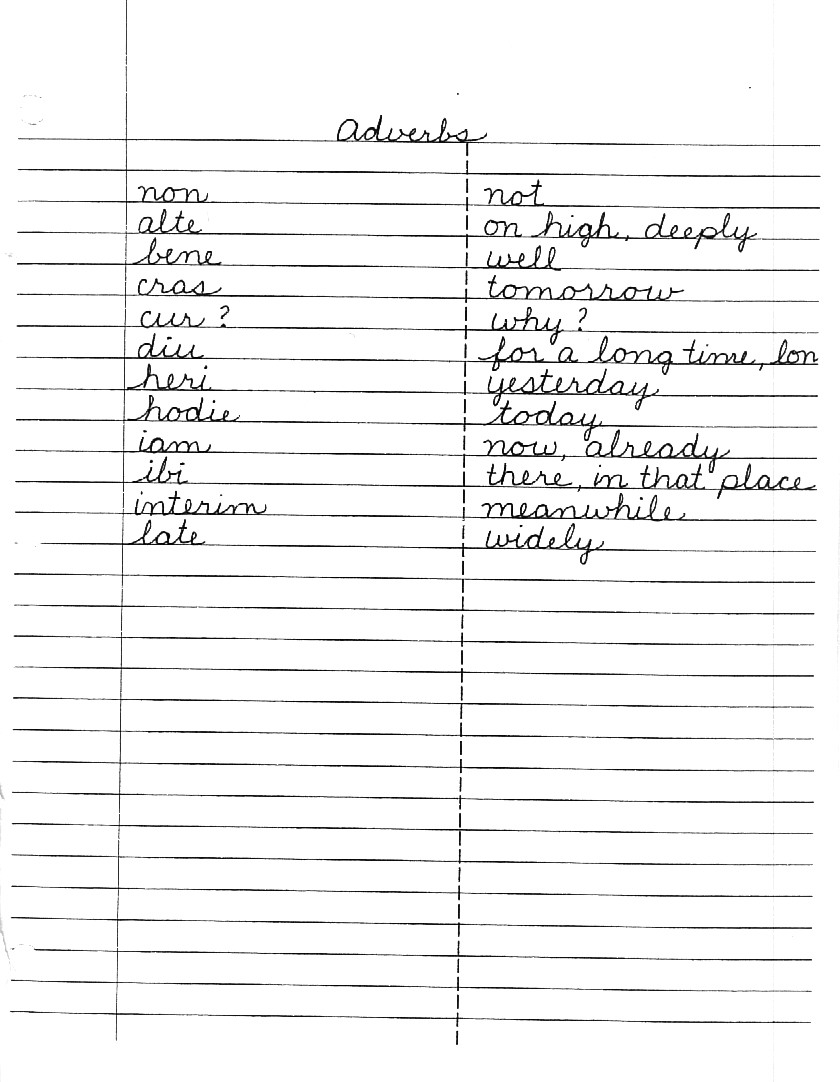 Adverbs
non not
alte on high, deeply
bene well
cras tomorrow
cur? why?
diu for a long time, lon
heri yesterday
hodie today
iam now, already
ibi there, in that place
interim meanwhile
late widely